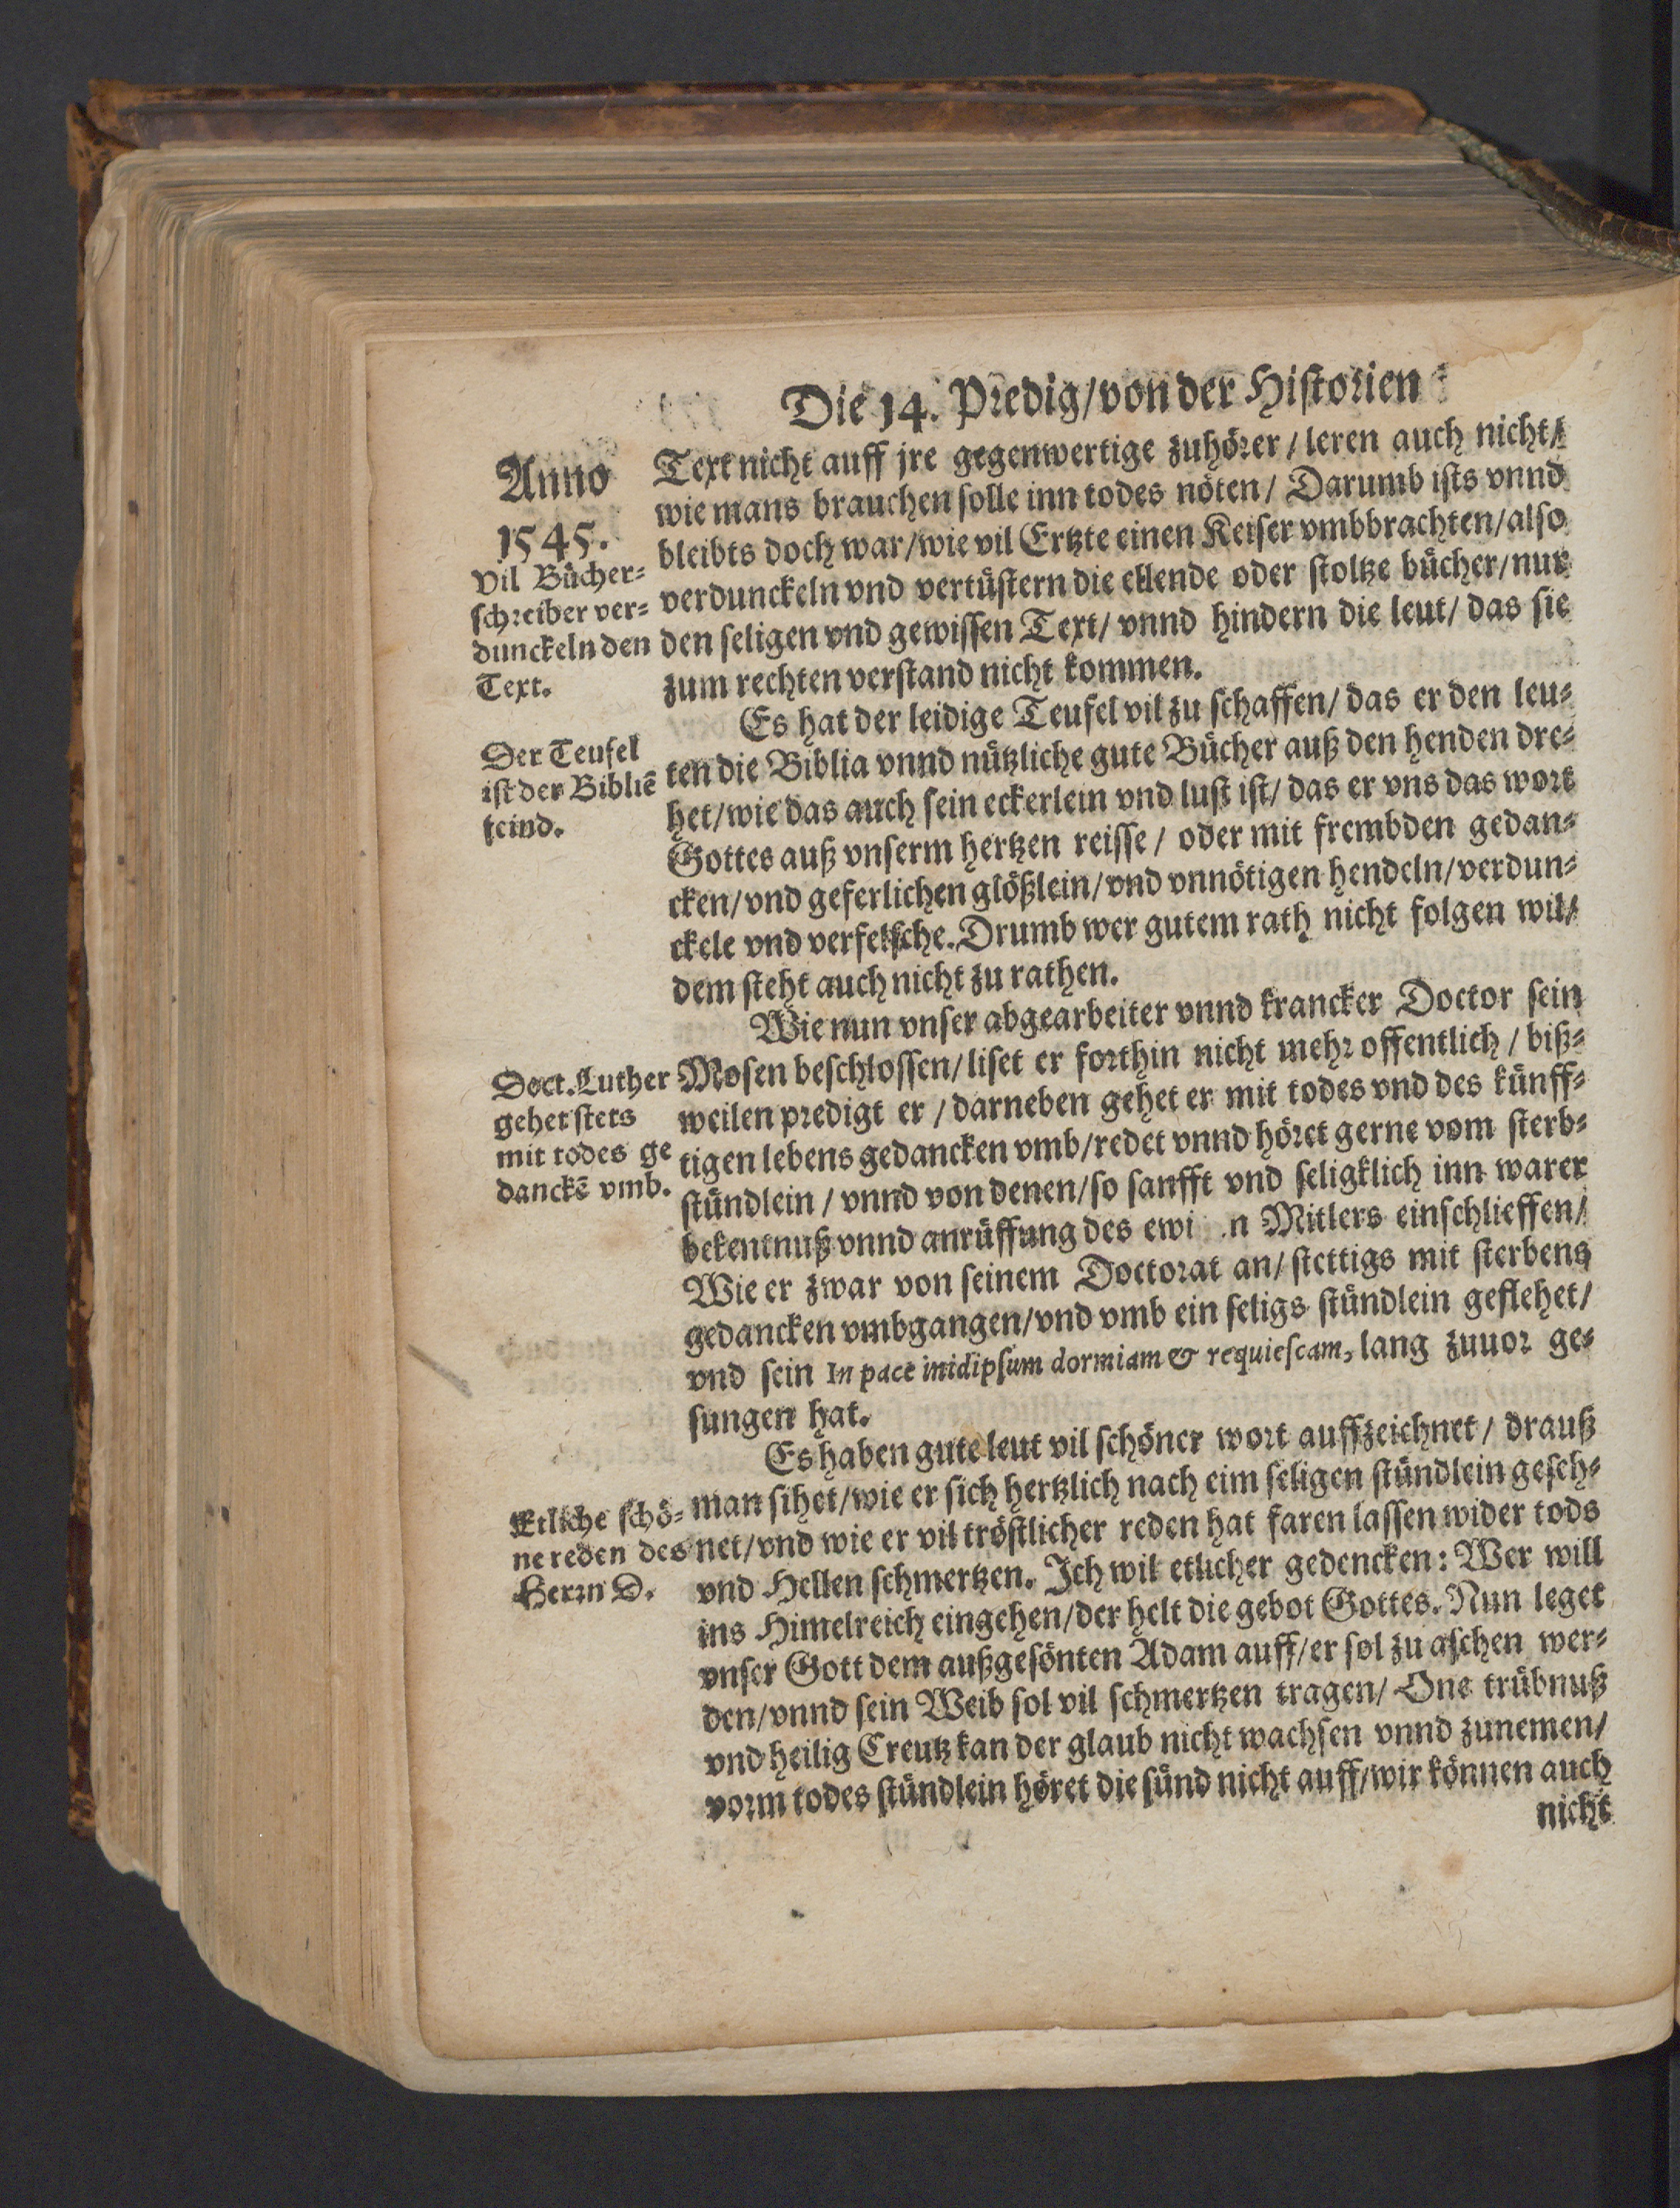 Die 14. Predig/von der Historien
Anno
1545.
Vil Bücher-
schreiber ver-
dunckeln den
Text.
Text nicht auff jre gegenwertige zuhörer/ leren auch nicht/
wie mans brauchen solle inn todes nöten/ Darumb ists vnnd
bleibts doch war/wie vil Ertzte einen Keiser vmbbrachten/also
verdunckeln vnd vertüstern die ellende oder stoltze bücher/nur
den seligen vnd gewissen Text/ vnnd hindern die leut/ das sie
zum rechten verstand nicht kommen.
Der Teufel
ist der Bibliē
feind.
Es hat der leidige Teufel vil zu schaffen/ das er den leu-
ten die Biblia vnnd nützliche gute Bücher auß den henden dre-
het/wie das auch sein eckerlein vnd lust ist/ das er vns das wort
Gottes auß vnserm hertzen reisse/ oder mit frembden gedan-
cken/vnd geferlichen glößlein/vnd vnnötigen hendeln/verdun-
ckele vnd verfelsche. Drumb wer gutem rath nicht folgen wil/
dem steht auch nicht zu rathen.
Doct. Luther
gehet stets
mit todes ge
danckē vmb.
Wie nun vnser abgearbeiter vnnd krancker Doctor sein
Mosen beschlossen/liset er forthin nicht mehr offentlich/ biß-
weilen predigt er/darneben gehet er mit todes vnd des künff-
tigen lebens gedancken vmb/redet vnnd höret gerne vom sterb-
stündlein/ vnnd von denen/so sanfft vnd seligklich inn warer
bekentnuß vnnd anrüffung des ewi n Mitlers einschlieffen/
Wie er zwar von seinem Doctorat an/ stettigs mit sterbens
gedancken vmbgangen/vnd vmb ein seligs stündlein geflehet/
vnd sein In pace inidipsum dormiam & requiescam, lang zuuor ge-
sungen hat.
Etliche schö-
ne reden des
Herrn D.
Es haben gute leut vil schöner wort auffzeichnet/ drauß
man sihet/wie er sich hertzlich nach eim seligen stündlein geseh-
net/vnd wie er vil tröstlicher reden hat faren lassen wider tods
vnd Hellen schmertzen. Ich wil etlicher gedencken: Wer will
ins Himelreich eingehen/der helt die gebot Gottes. Nun leget
vnser Gott dem außgesönten Adam auff/er sol zu aschen wer-
den/vnnd sein Weib sol vil schmertzen tragen/ One trübnuß
vnd heilig Creutz kan der glaub nicht wachsen vnnd zunemen/
vorm todes stündlein höret die sünd nicht auff/wir können auch
nicht